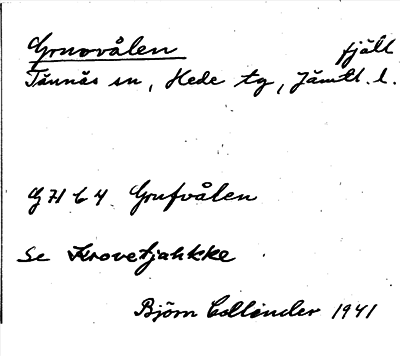 Gruvvålen fjäll
Tännäs sn, Hede tg, Jämtl. l.
G 71 64 Grufvålen
Se Kruvetjahkke
Björn Collinder 1941